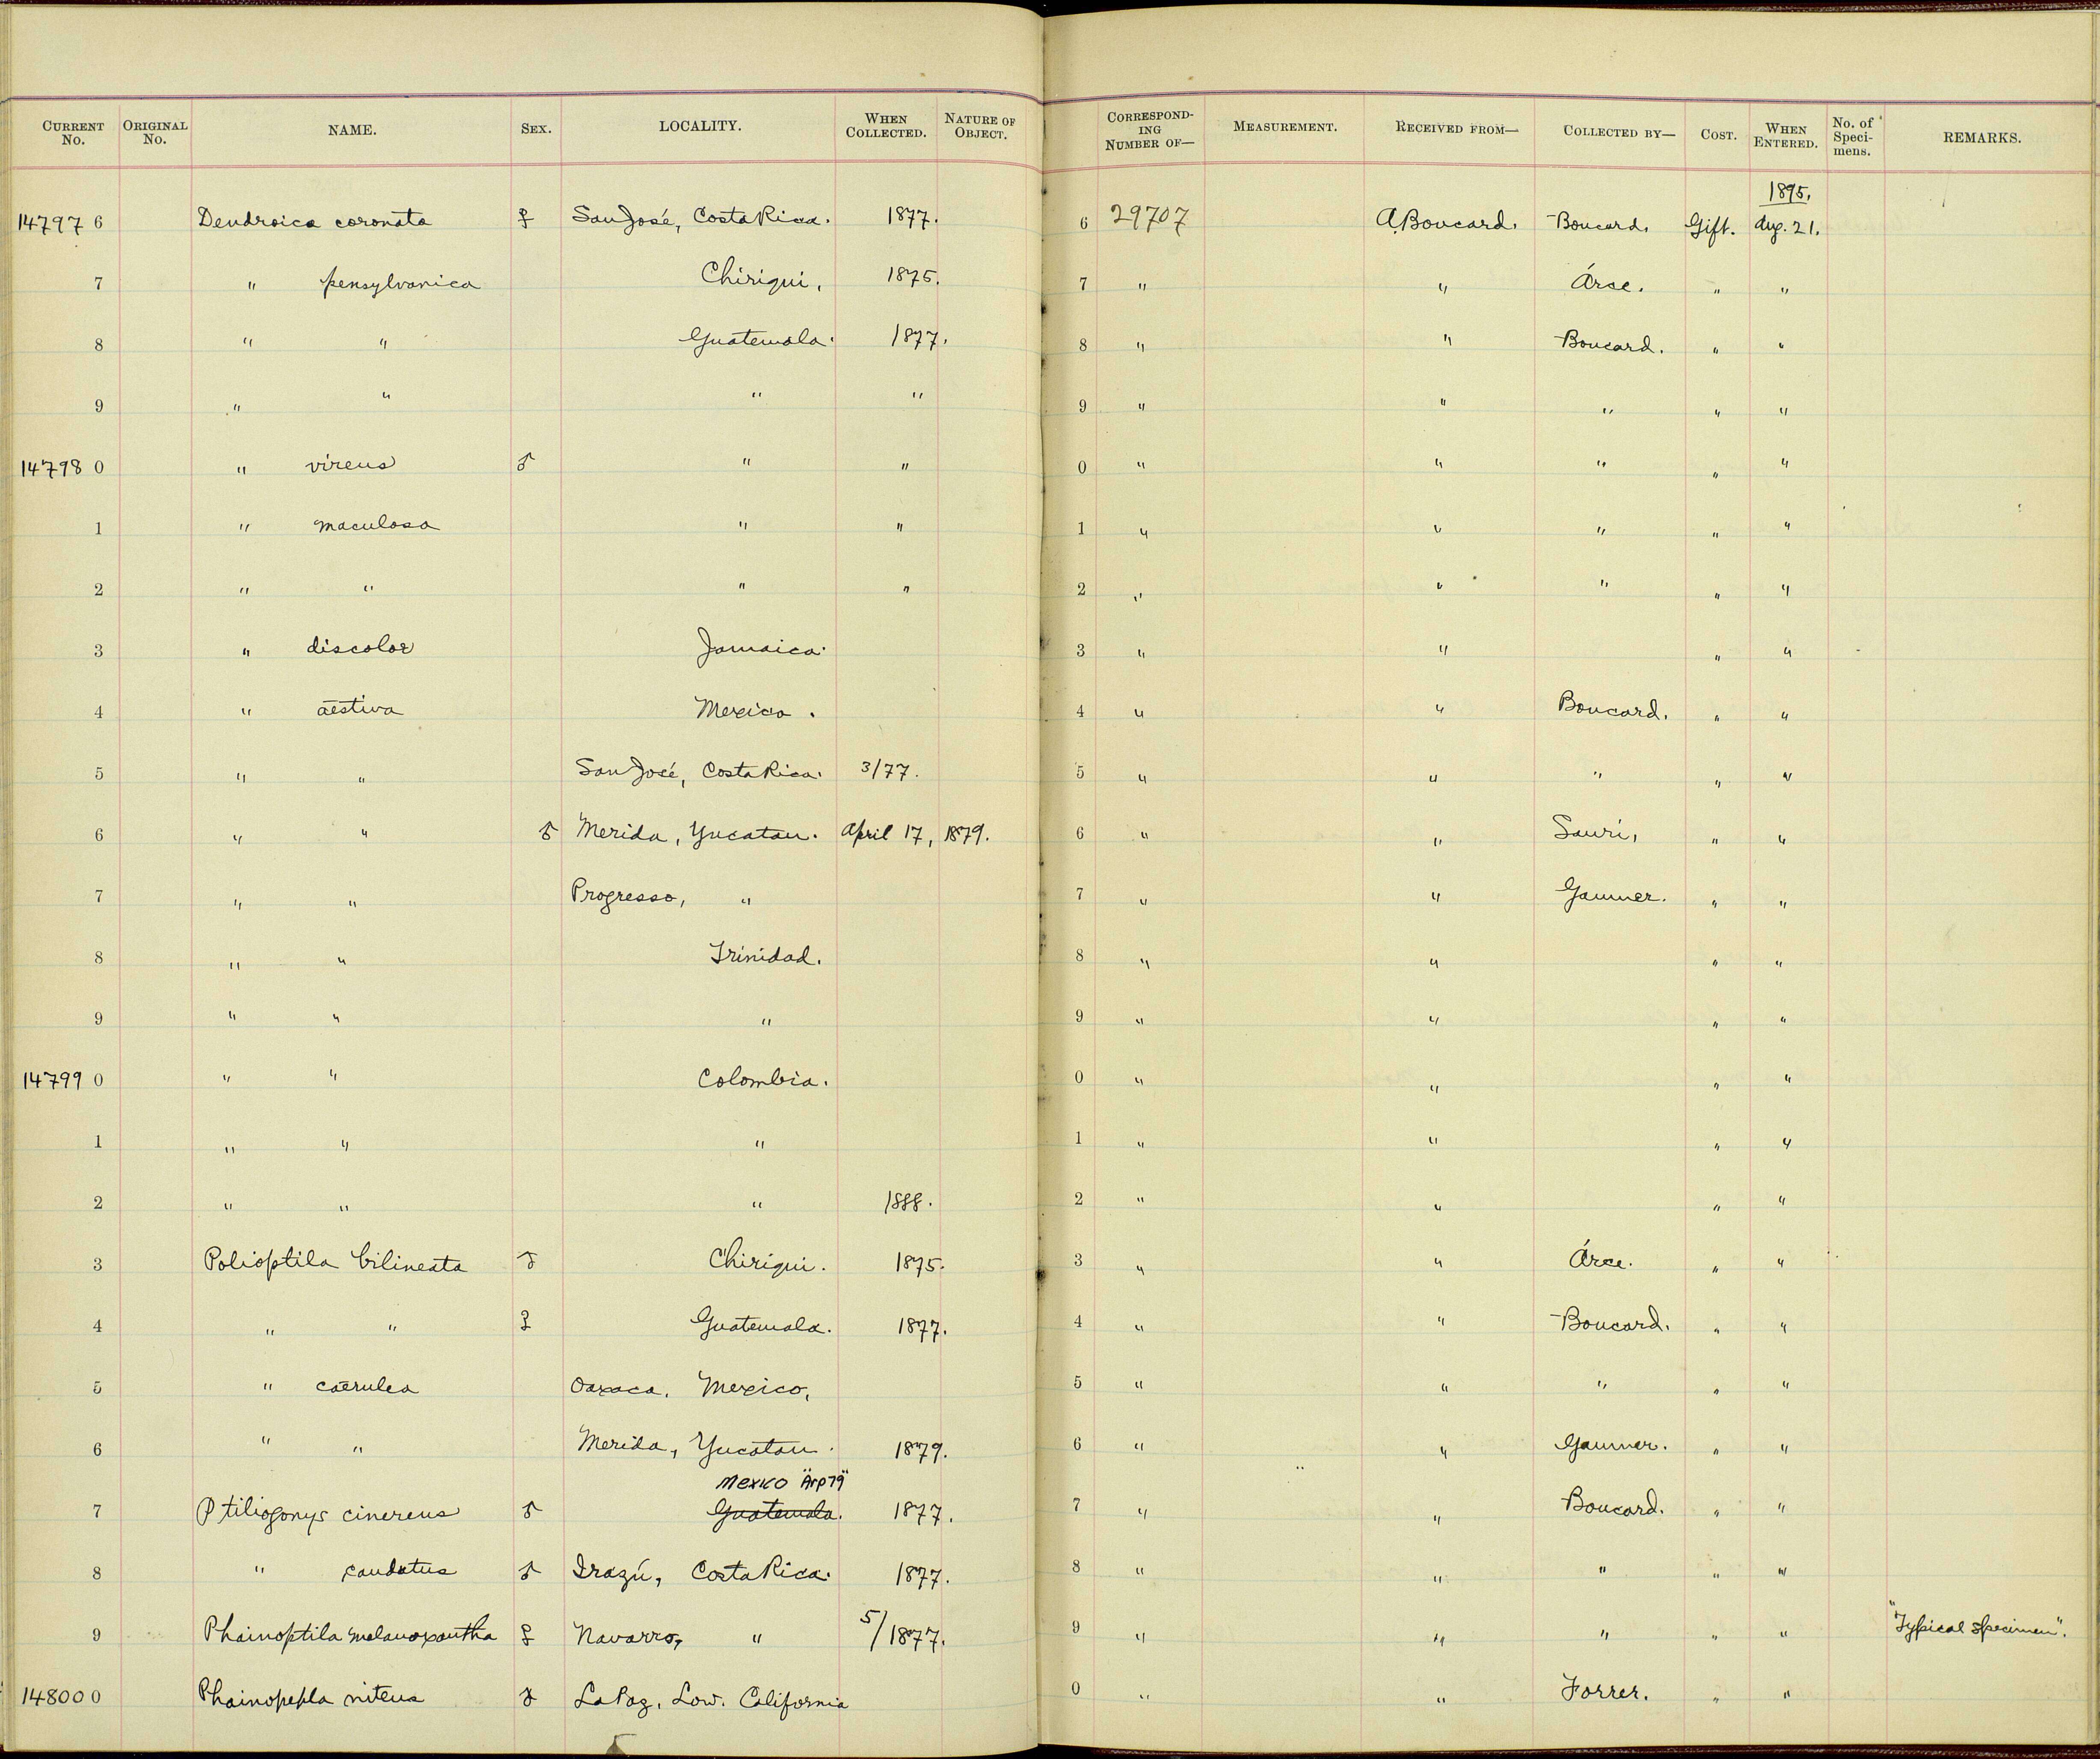 CURRENT No. ORIGINAL No. NAME. SEX. LOCALITY. WHEN COLLECTED. NATURE OF OBJECT. CORRESPONDING NUMBER OF— MEASUREMENT. RECEIVED FROM— COLLECTED BY— COST. WHEN ENTERED. No. of Specimens. REMARKS.
1895.
14797 6 Dendroica coronata ♀ San José, Costa Rica. 1877. 6 29707 A. Boucard. Boucard. Gift. Aug. 21.
7 " pensylvanica Chiriqui, 1875. 7 " " Arcé. " "
8 " " Guatemala. 1877. 8 " " Boucard. " "
9 " " " " 9 " " " " "
14798 0 " virens ♂ " " 0 " " " " "
1 " maculosa " " 1 " " " " "
2 " " " " 2 " " " " "
3 " discolor Jamaica. 3 " " " "
4 " aestiva Mexico. 4 " " Boucard. " "
5 " " San José, Costa Rica. 3/77. 5 " " " " "
6 " " ♂ Merida, Yucatan. April 17, 1879. 6 " " Sauri, " "
7 " " Progresso, " 7 " " Gaumer. " "
8 " " Trinidad. 8 " " " "
9 " " " 9 " " " "
14799 0 " " Colombia. 0 " " " "
1 " " " 1 " " " "
2 " " " 1888. 2 " " " "
3 Polioptila bilineata ♂ Chiriqui. 1875. 3 " " Arcé. " "
4 " " ♀ Guatemala. 1877. 4 " " Boucard. " "
5 " caerulea Oaxaca, Mexico, 5 " " " " "
6 " " Merida, Yucatan. 1879. 6 " " Gaumer. " "
Mexico "Arp 79"
7 Ptiliogonys cinereus ♂ Guatemala. 1877. 7 " " Boucard. " "
8 " caudatus ♂ Irazú, Costa Rica. 1877. 8 " " " " "
9 Phainoptila melanoxantha ♀ Navarro, " 5/1877. 9 " " " " " "Typical Specimen".
14800 0 Phainopepla nitens ♂ La Paz, Low. California 0 " " Forrer. " "